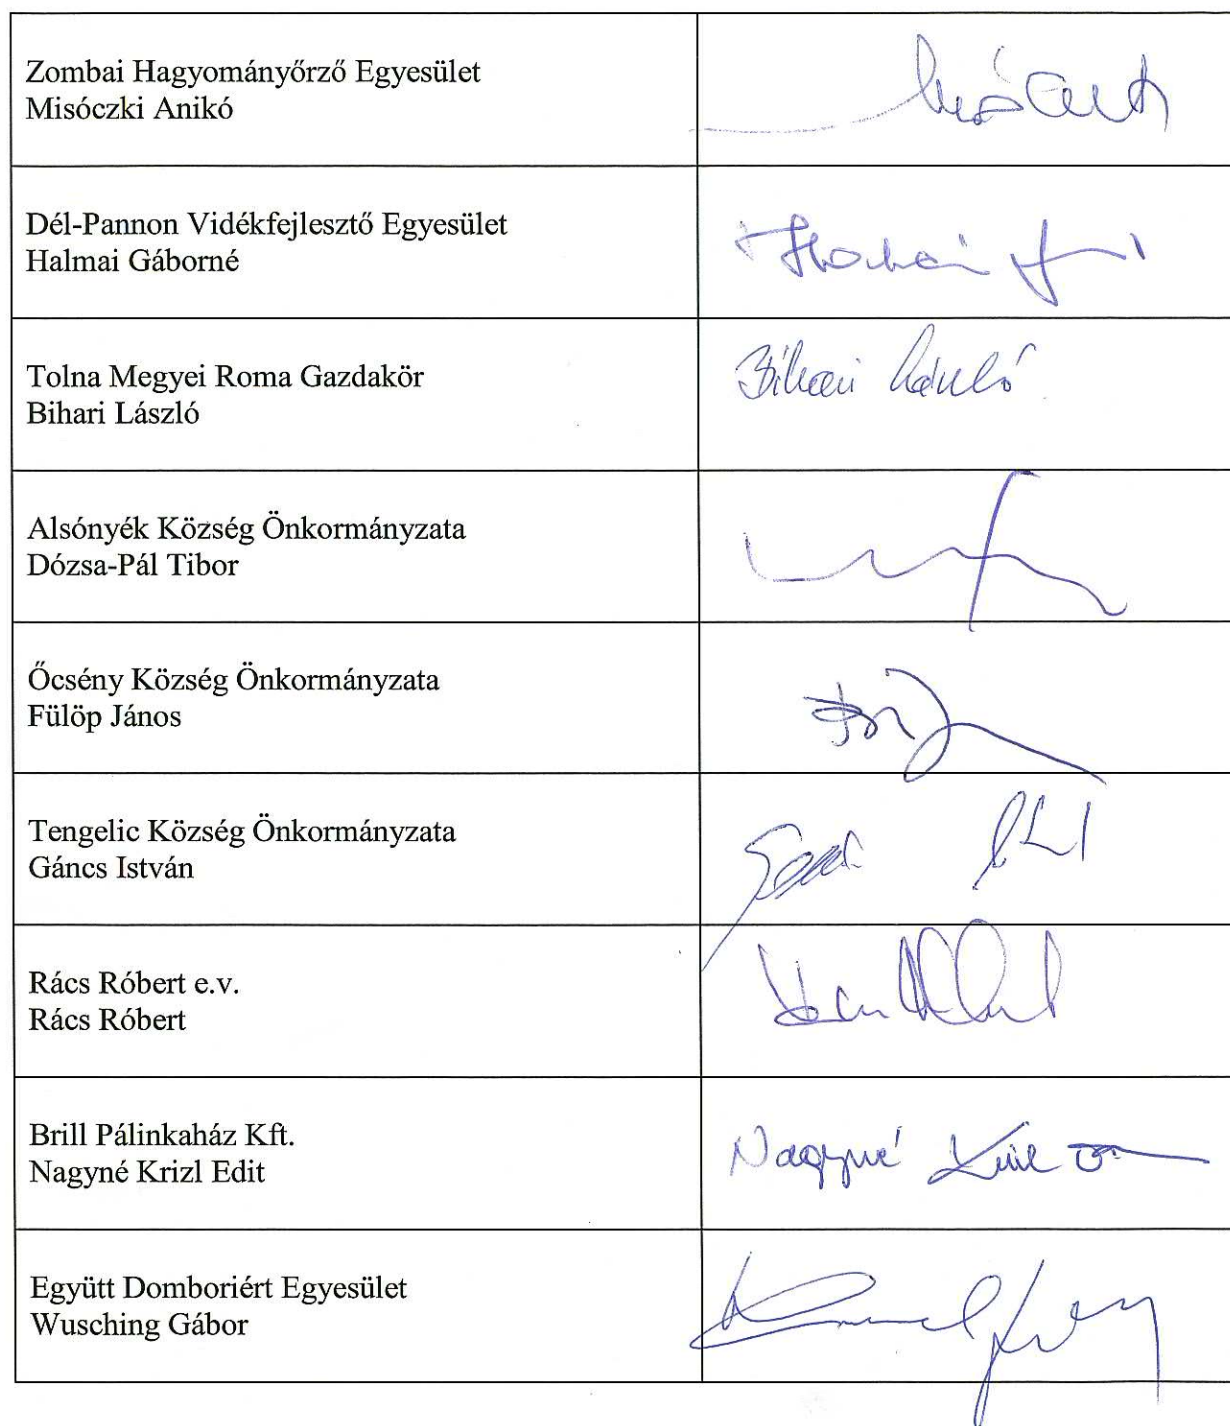 Zombai Hagyományőrző Egyesület
Misóczki Anikó
Dél-Pannon Vidékfejlesztő Egyesület
Halmai Gáborné
Tolna Megyei Roma Gazdakör
Bihari László
Bihari László
Alsónyék Község Önkormányzata
Dózsa-Pál Tibor
Őcsény Község Önkormányzata
Fülöp János
Tengelic Község Önkormányzata
Gáncs István
Rács Róbert e.v.
Rács Róbert
Brill Pálinkaház Kft.
Nagyné Krizl Edit
Nagyné
Együtt Domboriért Egyesület
Wusching Gábor